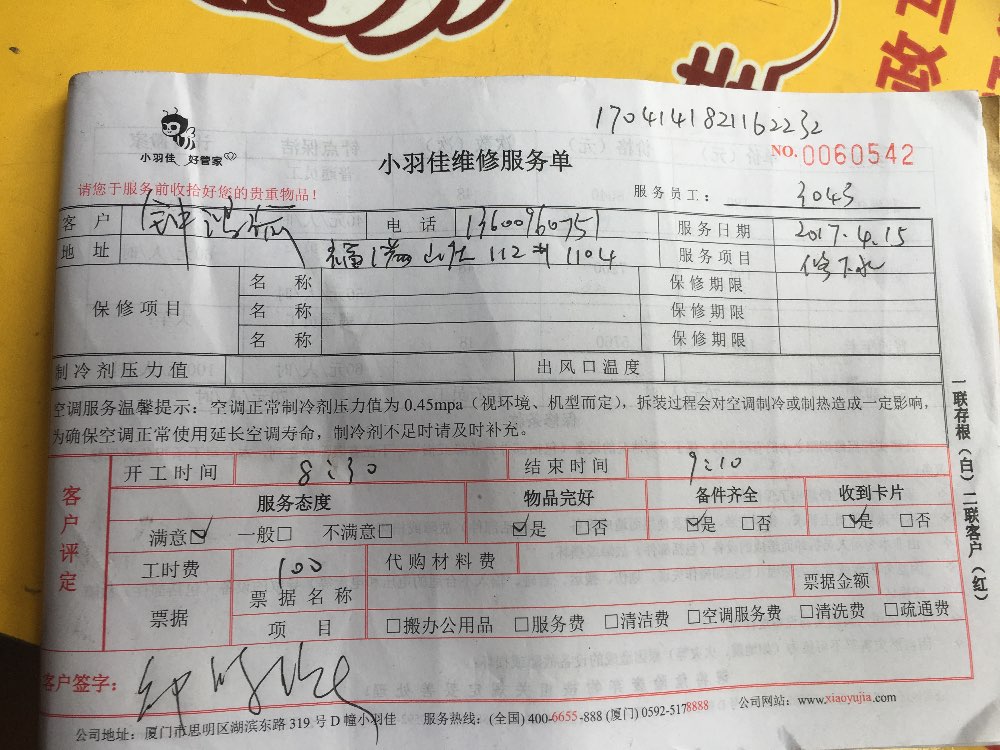 政
1704141821162232
小羽佳 好管家
小羽佳维修服务单
NO. 0060542
请您于服务前收拾好您的贵重物品！
服务员工： 3043
客 户 电 话 13600960751 服务日期 2017.4.15
地 址 112# 1104 服务项目 修下水
保修项目 名 称 保修期限
名 称 保修期限
名 称 保修期限
制冷剂压力值 出风口温度
空调服务温馨提示：空调正常制冷剂压力值为 0.45mpa（视环境、机型而定），拆装过会对空调制冷或制热造成一定影响，
为确保空调正常使用延长空调寿命，制冷剂不足时请及时补充。
一联存根（白）二联客户（红）
客户评定
开工时间 8:30 结束时间 9:10
服务态度 物品完好 备件齐全 收到卡片
满意☑ 一般□ 不满意□ ☑是 □否 ☑是 □否 ☑是 □否
工时费 100 代购材料费
票据 票据名称 票据金额
项 目 □搬办公用品 □服务费 □清洁费 □空调服务费 □清洗费 □疏通费
客户签字：
公司地址：厦门市思明区湖滨东路 319 号 D 幢小羽佳 服务热线：(全国) 400-6655-888 (厦门) 0592-5178888 公司网站：www.xiaoyujia.com